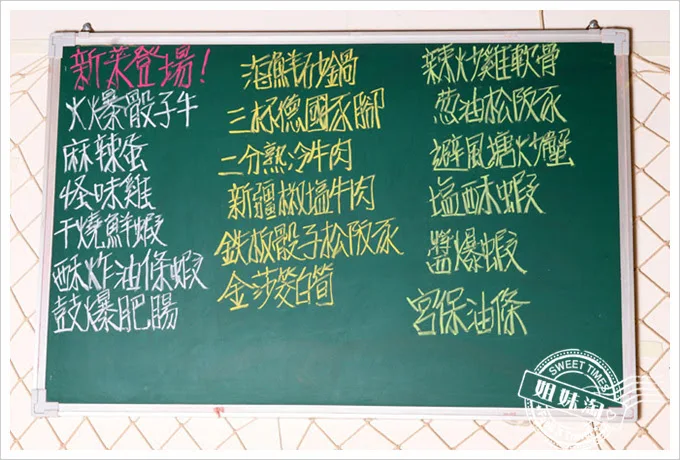 新菜登場!
火爆骰子牛
麻辣蛋
怪味雞
干燒鮮蝦
酥炸油條蝦
鼓爆肥腸
海鮮砂鍋
三杯德國豕腳
二分熟冷牛肉
新疆椒塩牛肉
鉄板骰子松阪豕
金莎筊白筍
辣炒雞軟骨
葱油松阪豕
避風塘炒蟹
塩酥蝦
醬爆蝦
宮保油條
SWEET TIMES
姐妹淘